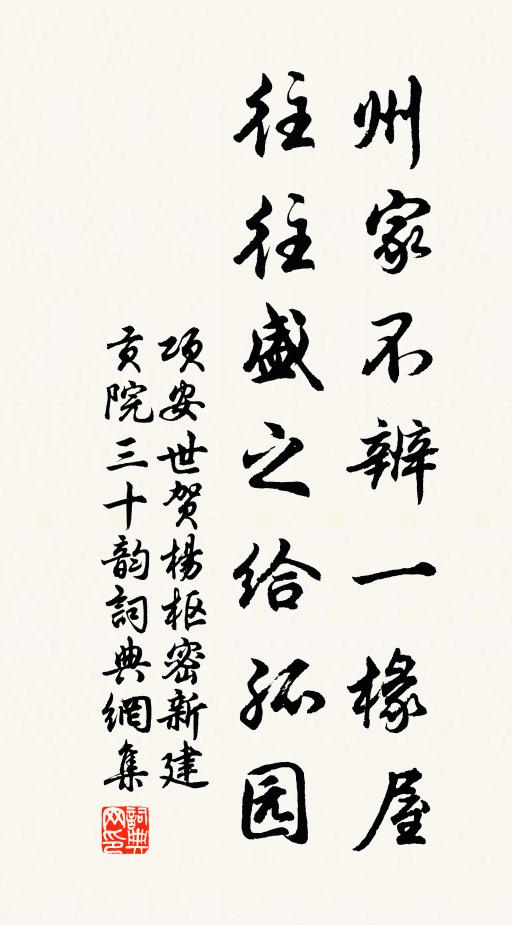 州家不辨一椽屋
往往盛之给孤园
项安世贺杨枢密新建
贡院三十韵詞典網集
詞典网印